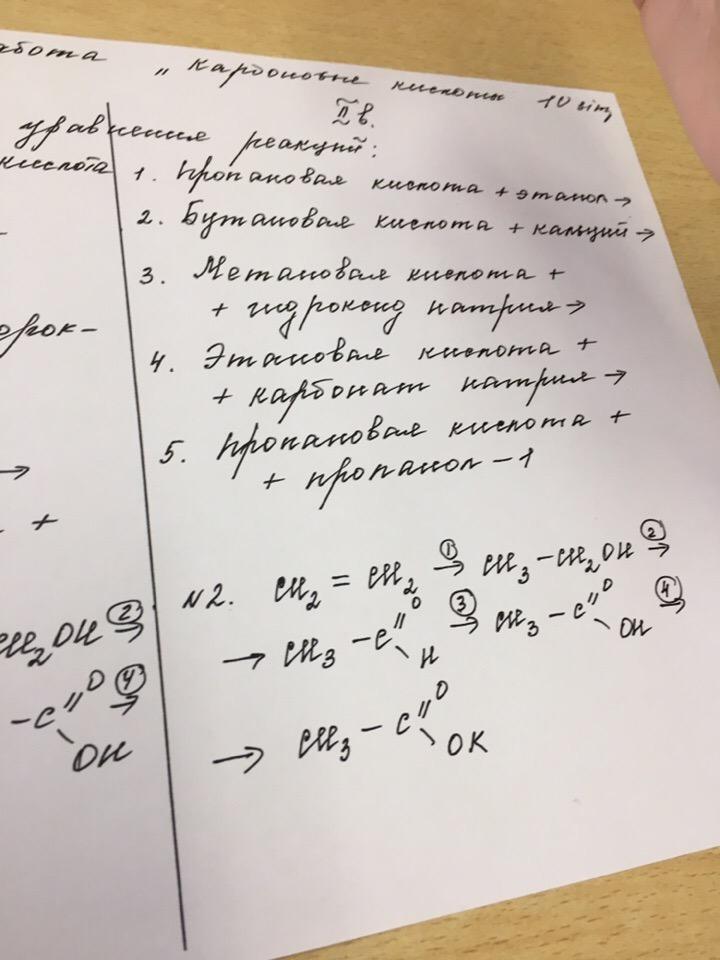 абота „ Карбоновые кислоты 10
II в.
уравнения реакций:
кислота
1. Пропановая кислота + этанол →
2. Бутановая кислота + кальций →
3. Метановая кислота +
+ гидроксид натрия →
4. Этановая кислота +
+ карбонат натрия →
5. Пропановая кислота +
+ пропанол - 1
N2. CH2 = CH2 ①→ CH3 - CH2OH ②→
→ CH3 - C // O \ H ③→ CH3 - C // O \ OH ④→
→ CH3 - C // O \ OK
ерок-
→
+
CH2OH ②→
- C // O \ OH ④→